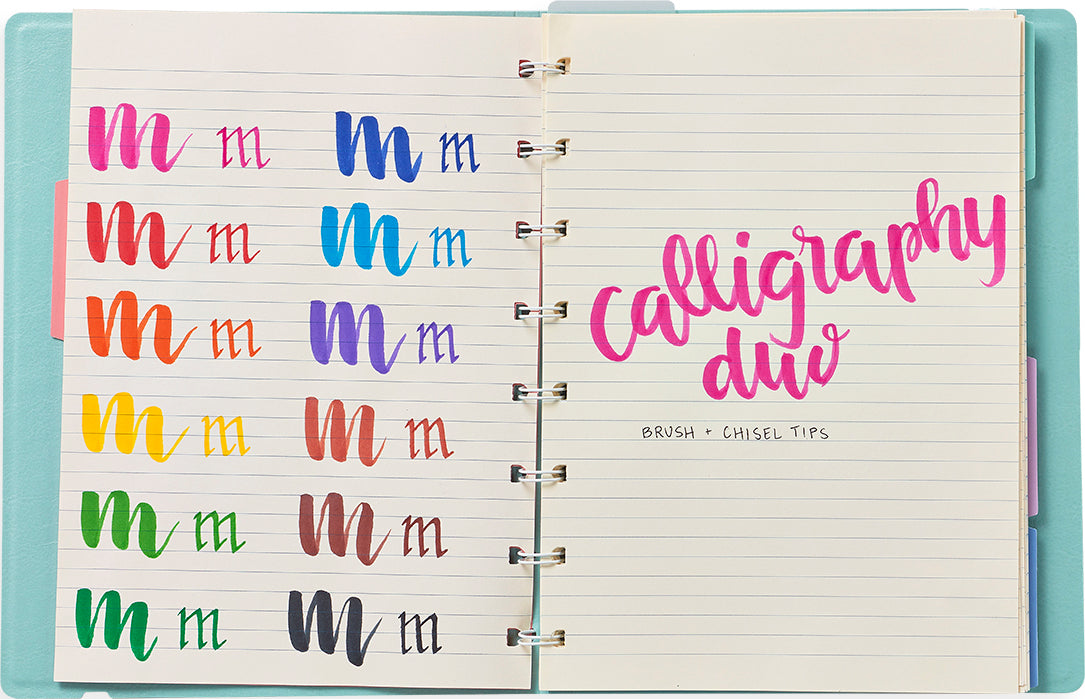 m m m m
m m m m
m m m m
m m m m
m m m m
m m m m
calligraphy
duo
BRUSH + CHISEL TIPS